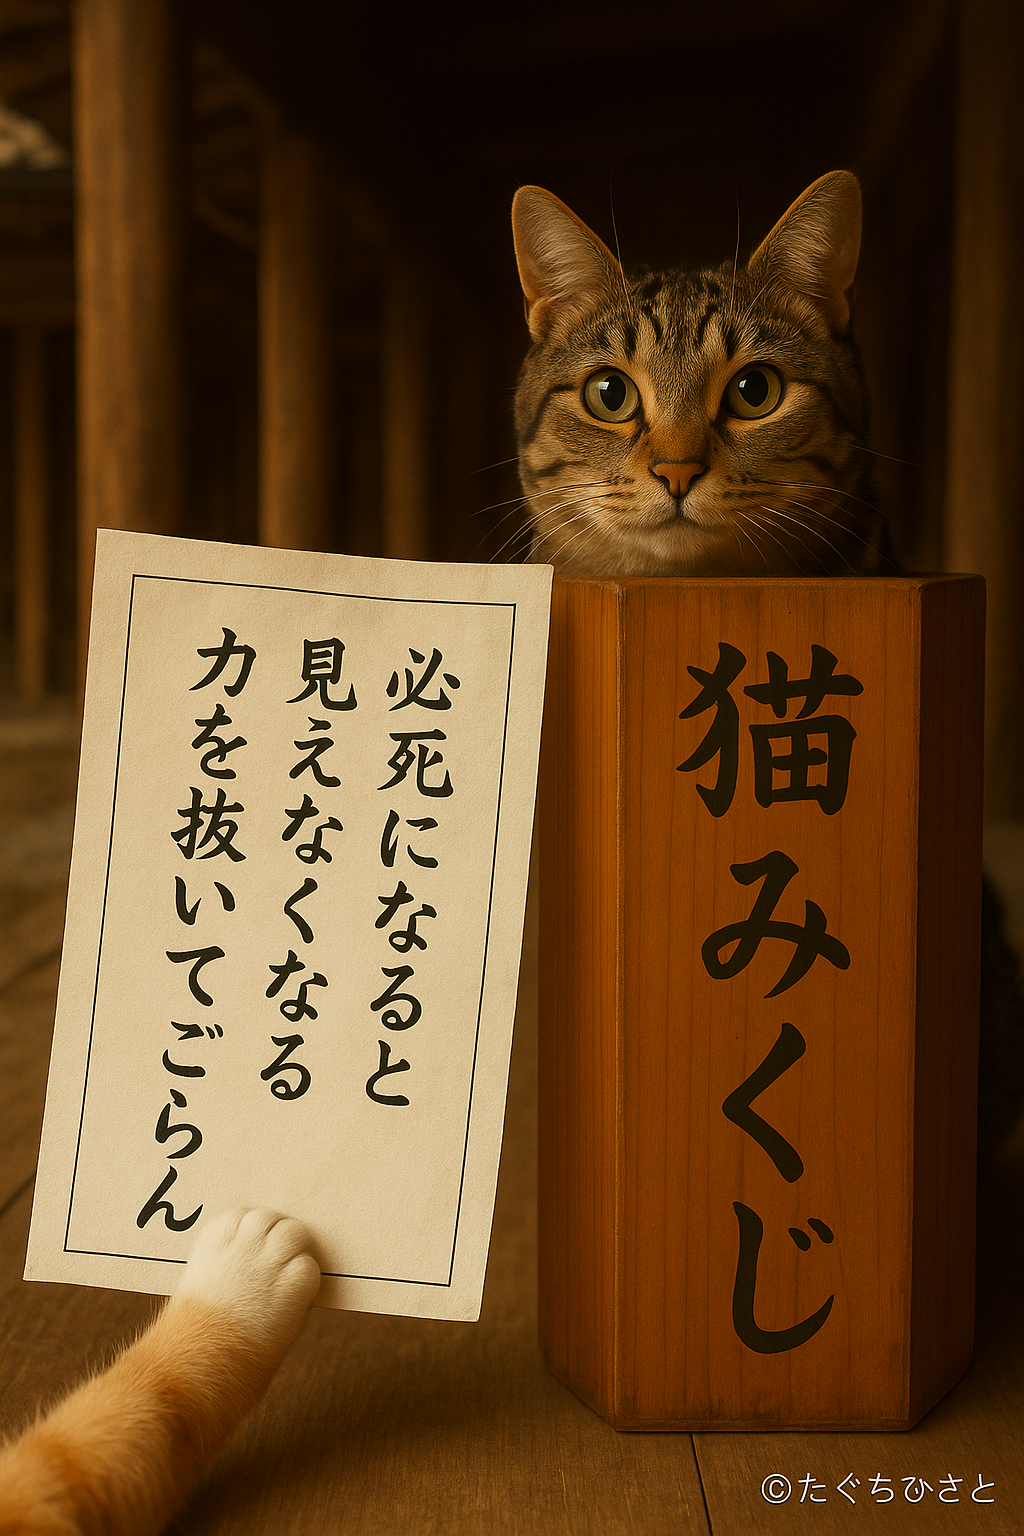 必死になると
見えなくなる
力を抜いてごらん
猫みくじ
©たぐちひさと